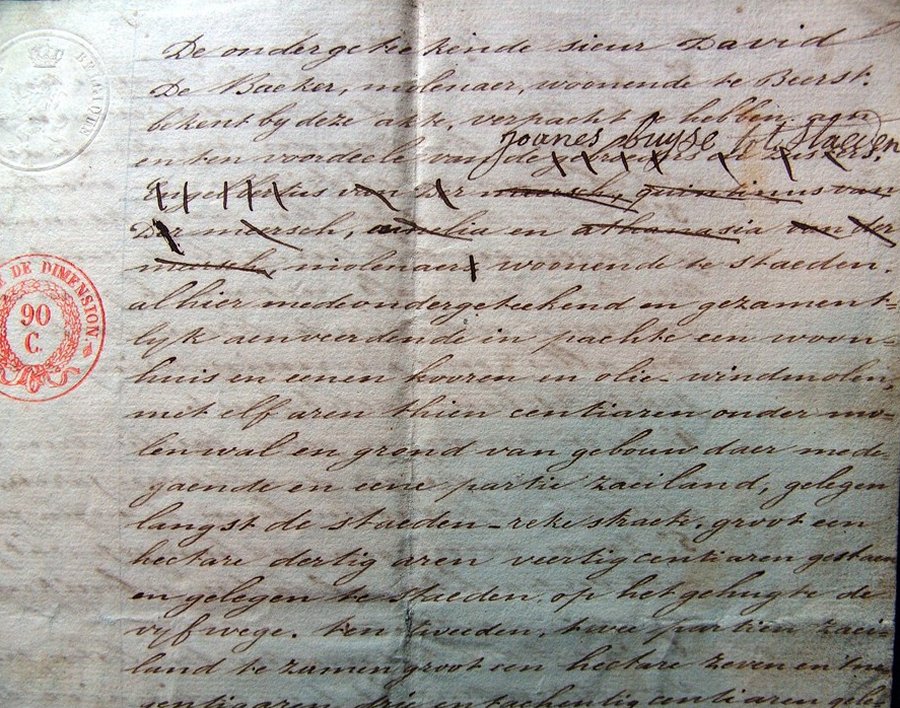 BELGIQUE
DE DIMENSION.
90
C.
De ondergeteekende sieur David
De Backer, molenaer, woonende te Beerst:
bekent by deze akte, verpacht te hebben, aan
Joanes buyse tot Staeden
en ten voordeele van de gebroeders en zusters.
Engelbertus van Der meersch, quintinus van
Der meersch, amelia en athanasia van der
meersch, molenaers woonende te staeden.
alhier medeondergeteekend en gezament=
lyk aenveerdende in pachte een woon=
huis en eenen kooren en olie-windmolen,
met elf aren thien centiaren onder mo=
lenwal en grond van gebouw daer mede
gaende en eene partie zaeiland, gelegen
langst de staeden-reke straete. groot een
hectare dertig aren veertig centiaren gestaen
en gelegen te staeden. op het gehugte de
vyfwege. ten tweeden, twee partien zaei=
land te zamen groot een hectare zeven en twee
centiaaren drie en tachentig centiaren gele